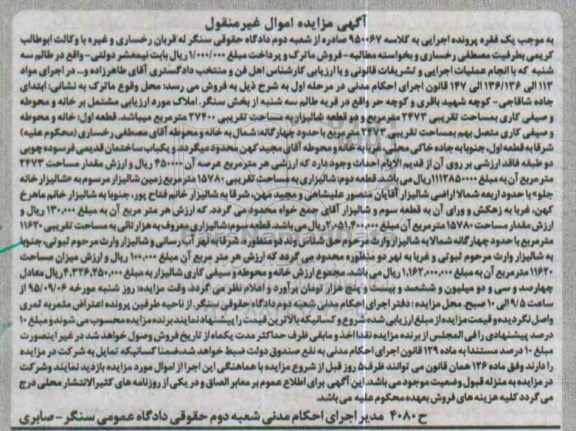 آگهی مزایده اموال غیرمنقول
به موجب یک فقره پرونده اجرایی به کلاسه ۹۵۰۰۶۷ صادره از شعبه دوم دادگاه حقوقی سنگر له قربان رخساری و غیره با وکالت ابوطالب
کریمی بطرفیت مصطفی رخساری و بخواسته مطالبه - فروش ماترک و پرداخت مبلغ ۱/۰۰۰/۰۰۰ ریال بابت نیمعشر دولتی - واقع در طالم سه
شنبه که با انجام عملیات اجرایی و تشریفات قانونی و با ارزیابی کارشناس اهل فن و منتخب دادگستری آقای طاهرزاده و... در اجرای مواد
۱۱۳ الی ۱۳۶/۱۳۶ الی ۱۴۷ قانون اجرای احکام مدنی در مرحله اول به شرح ذیل به فروش می رسد: محل وقوع ماترک به نشانی: ابتدای
جاده شاقاجی - کوچه شهید باقری و کوچه حر واقع در قریه طالم سه شنبه از بخش سنگر. املاک مورد ارزیابی مشتمل بر خانه و محوطه
و صیفی کاری بمساحت تقریبی ۲۴۷۳ مترمربع و دو قطعه شالیزار به مساحت تقریبی ۲۷۴۰۰ مترمربع میباشد. قطعه اول: خانه و محوطه
و صیفی کاری متصل بهم بمساحت تقریبی ۲۴۷۳ مترمربع با حدود چهارگانه: شمالا به خانه و محوطه آقای مصطفی رخساری (محکوم علیه)
شرقا به قطعه اول، جنوبا به جاده خاکی محلی، غربا به خانه و محوطه آقای مجید کهن محدود میگردد. و یکباب ساختمان قدیمی فرسوده چوبی
دو طبقه فاقد ارزشی بر روی آن از قدیم الایام احداث وجود دارد که ارزشی هر مترمربع عرصه آن ۴۵۰۰۰۰ ریال و ارزش مقدار مساحت ۲۴۷۳
متر مربع آن به مبلغ ۱۱۱۲۸۵۰۰۰۰ ریال می باشد. قطعه دوم: شالیزاری به مساحت تقریبی ۱۵۷۸۰ مترمربع زمین شالیزار مرسوم به «شالیزار خانه
جلو» با حدود اربعه شمالا اراضی شالیزار آقایان منصور علیشاهی و مجید مهن، شرقا به شالیزار خانم فتاح پور، جنوبا به شالیزار خانم ماهرخ
کهن، غربا به زهکش و ورای آن به قطعه سوم و شالیزار آقای جمع خواه محدود می گردد. که ارزش هر متر مربع آن به مبلغ ۱۳۰,۰۰۰ ریال و
ارزش مقدار مساحت ۱۵۷۸۰ مترمربع آن مبلغ ۲,۰۵۱,۴۰۰,۰۰۰ ریال می باشد. قطعه سوم: شالیزاری معروف به هزار تائی به مساحت تقریبی ۱۱۶۲۰
مترمربع با حدود چهارگانه شمالا به شالیزار وارث مرحوم حق شناس وند دو متطوره، شرقا به نهر آب رسانی و شالیزار وارث مرحوم ثبوتی، جنوبا
به شالیزار وارث مرحوم ثبوتی و غربا به نهر دو منظوره محدود می گردد که ارزش هر متر مربع آن به مبلغ ۱۰۰,۰۰۰ ریال و ارزش میزان مساحت
۱۱۶۲۰ مترمربع آن به مبلغ ۱,۱۶۲,۰۰۰,۰۰۰ ریال می باشد. مجموع ارزش خانه و محوطه و صیفی کاری شالیزار به مبلغ ۴,۳۲۶,۲۵۰,۰۰۰ ریال معادل
چهارصد و سی و دو میلیون و ششصد و بیست و پنج هزار تومان برآورد و اعلام نظر می گردد. وقت مزایده: روز شنبه مورخه ۹۵/۰۹/۰۶ از
ساعت ۹/۵ الی ۱۰ صبح. محل مزایده: دفتر اجرای احکام مدنی شعبه دوم دادگاه حقوقی سنگر. از ناحیه طرفین پرونده اعتراض مثمره ثمری
واصل نگردیده و قیمت مزایده از مبلغ ارزیابی شده شروع و کسانیکه بالاترین قیمت را پیشنهاد نمایند برنده مزایده محسوب می شوند و مبلغ ۱۰
درصد پیشنهادی را فی المجلس از برنده مزایده نقدا اخذ و مابقی ظرف حداکثر مدت یکماه از تاریخ فروش وصول خواهد شد در غیر اینصورت
مبلغ ۱۰ درصد مستندا به ماده ۱۲۹ قانون اجرای احکام مدنی به نفع صندوق دولت ضبط خواهد شد. ضمنا کسانیکه تمایل به شرکت در مزایده
را دارند وفق ماده ۱۲۶ همان قانون می توانند ظرف ۵ روز قبل از شروع مزایده با هماهنگی این اجرا از اموال مورد مزایده بازدید نمایند و شرکت
در مزایده به منزله قبول وضعیت موجود می باشد. این آگهی برای اطلاع عموم بر معابر الصاق و در یکی از روزنامه های کثیرالانتشار محلی درج
می گردد کلیه هزینه های فروش بعهده محکوم علیه می باشد.
ح ۴۰۸۰ مدیر اجرای احکام مدنی شعبه دوم حقوقی دادگاه عمومی سنگر - صابری